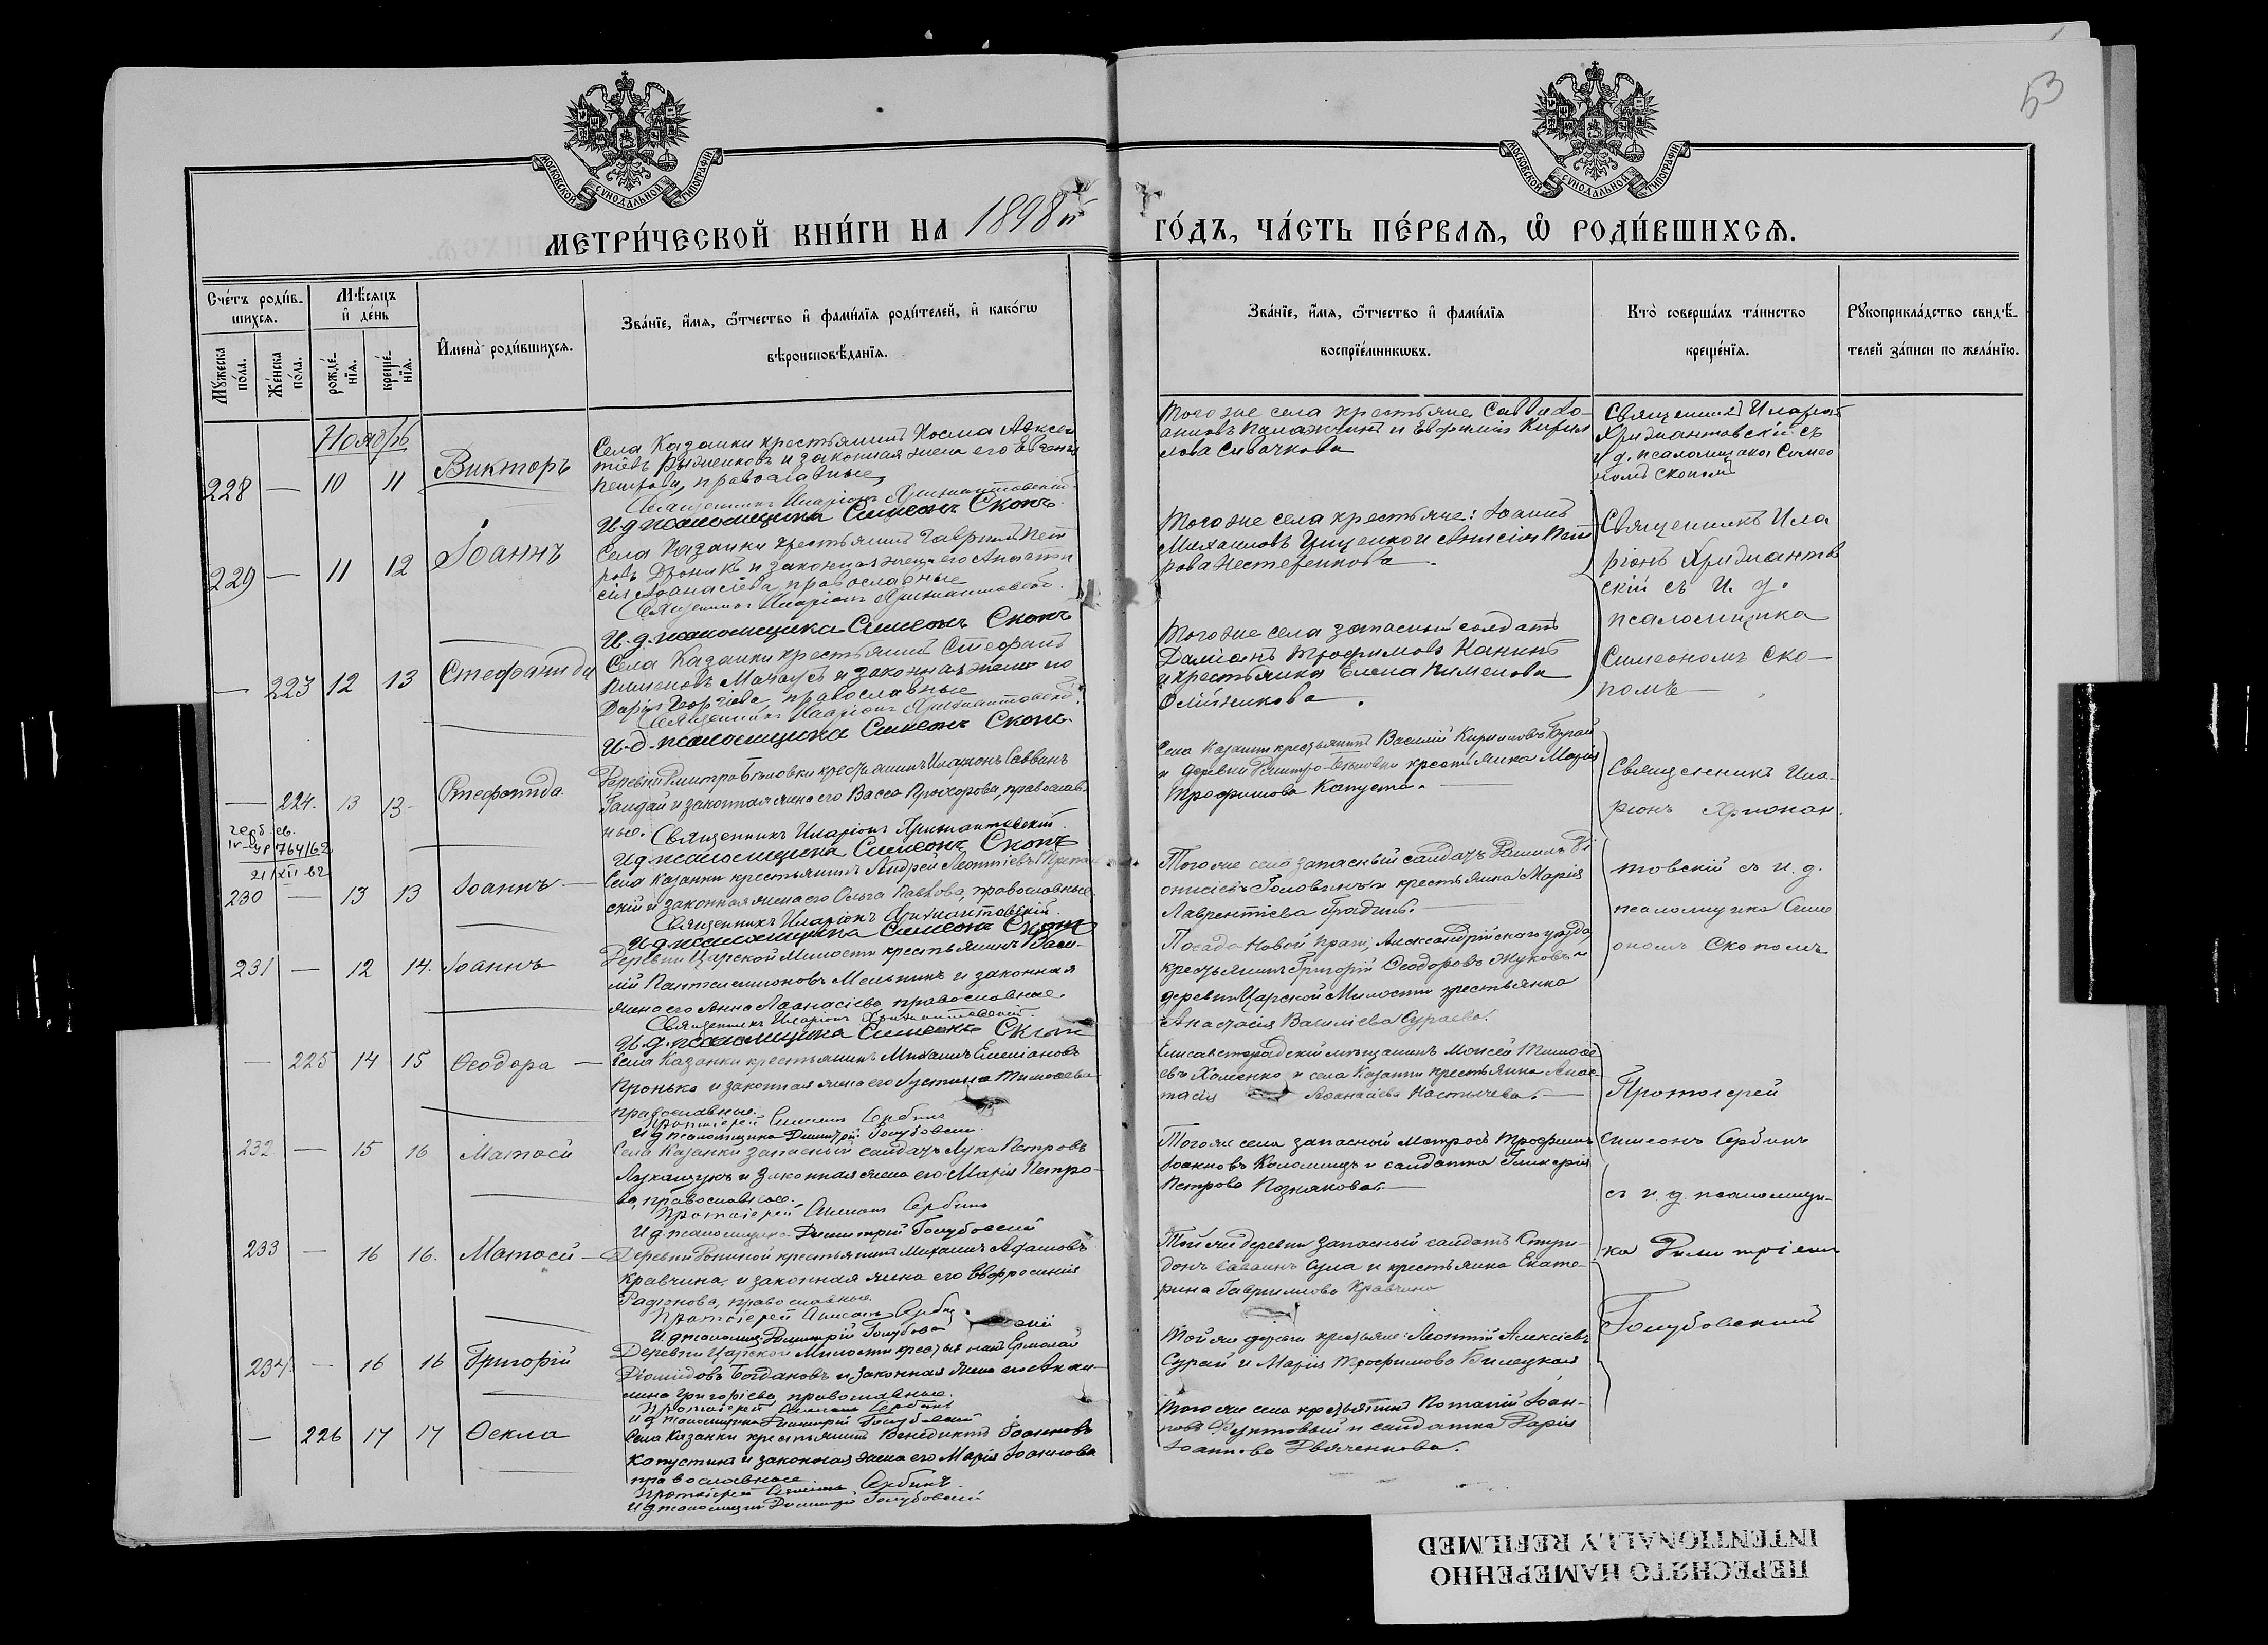 53
МОСКОВСКОЙ СУНОДАЛЬНОЙ ТИПОГРАФІИ
МОСКОВСКОЙ СУНОДАЛЬНОЙ ТИПОГРАФІИ
МЕТРИ́ЧЕСКОЙ КНИ́ГИ НА 1898й
ГО́ДЪ, ЧА́СТЬ ПЕ́РВАѦ, Ѡ҆ РОДИ́ВШИХСѦ.
Сче́тъ роди́в-
шихсѧ.
Мꙋ́жеска по́ла.
Же́нска по́ла.
Мѣ́сѧцъ и҆ де́нь
рожде́-
нїѧ.
креще́-
нїѧ.
И҆мена̀ роди́вшихсѧ.
Зва́нїе, и҆́мѧ, ѻ҆́тчество и҆ фами́лїѧ роди́телей, и҆ како́гѡ
вѣроисповѣ́данїѧ.
Зва́нїе, и҆́мѧ, ѻ҆́тчество и҆ фами́лїѧ
воспрїе́мникѡвъ.
Кто̀ соверша́лъ та́инство
креще́нїѧ.
Рꙋкоприкла́дство свидѣ́-
телей за́писи по жела́нїю.
Ноябрь
228 — 10 11 Викторъ
Села Казанки крестьянинъ Косма Авксен
тіевъ и законная жена его Евгенія
Петрова, православные
Священникъ Иларіонъ Хрисмантовскій
И. д. псаломщика Симеонъ Скопъ
Того же села крестьяне Савва Іо-
анновъ и Евфимія Кирил
лова Сивачкова
Священник Иларіонъ
Хрисмантовскій съ
и. д. псаломщика Симео
номъ Скопомъ
229 — 11 12 Іоаннъ
Села Казанки крестьянинъ Гавріилъ Пет
ровъ и законная жена его Анаста
сія Аѳанасіева, православные
Священникъ Иларіонъ Хрисмантовскій
И. д. псаломщика Симеонъ Скопъ
Того же села крестьяне: Іоаннъ
Михаиловъ Гриценко и Анисія Пет
рова Нестеренкова.
Священникъ Ила
ріонъ Хрисмантов
скій съ и. д.
псаломщика
Симеономъ Ско-
помъ
— 223 12 13 Стефанида
Села Казанки крестьянинъ Стефанъ
Пименовъ и законная жена его
Дарія Георгіева, православные
Священникъ Иларіонъ Хрисмантовскій
И. д. псаломщика Симеонъ Скопъ
Того же села запасный солдатъ
Даміанъ Трофимовъ
и крестьянка Елена Пименова
Олійникова.
— 224. 13 13- Стефанида
Деревни Дмитро-Бѣловки крестьянинъ Иларіонъ Саввинъ
Гайдай и законная жена его Васса Прохорова, православ-
ные. Священникъ Иларіонъ Хрисмантовскій
И. д. псаломщика Симеонъ Скопъ
Села Казанки крестьянинъ Василій Кирилловъ
и деревни Дмитро-Бѣловки крестьянка Марія
Трофимова Капуста.
Священникъ Ила-
ріонъ Хрисман
товскій съ и. д.
псаломщика Симе
ономъ Скопомъ
764162
21/XII-62
230 — 13 13 Іоаннъ
Села Казанки крестьянинъ Андрей Леонтіевъ
скій и законная жена его Ольга Павлова, православные
Священникъ Иларіонъ Хрисмантовскій
И. д. псаломщика Симеонъ Скопъ
Того же села запасный солдатъ Даніилъ Ді
онисіевъ Головинъ и крестьянка Марія
Лаврентіева
231 — 12 14. Іоаннъ
Деревни Царской Милости крестьянинъ Васи-
лій Пантелеимоновъ Мельникъ и законная
жена его Анна Аѳанасіева православные.
Священникъ Иларіонъ Хрисмантовскій
И. д. псаломщика Симеонъ Скопъ
Посада Новой Праги, Александрійскаго уѣзда,
крестьянинъ Григорій Ѳеодоровъ Жуковъ и
деревни Царской Милости крестьянка
Анастасія Василіева Сураева.
— 225 14 15 Ѳеодора
Села Казанки крестьянинъ Михаилъ Емеліановъ
Пронько и законная жена его Іустина Тимоѳеева
православные.
Протоіерей Симеонъ Сербинъ
И д псаломщика Димитрій Голубовскій
Елисаветградскій мѣщанинъ Моисей Тимоѳе
евъ Хоменко и села Казанки крестьянка Анас-
тасія Аѳанасіева Костычева.
Протоіерей
Симеонъ Сербинъ
съ и. д. псаломщи-
ка Димитріемъ
Голубовскимъ
232 — 15 16 Матѳей
Села Казанки запасный солдатъ Лука Петровъ
Лукащукъ и законная жена его Марія Петро-
ва, православные.
Протоіерей Симеонъ Сербинъ
И д псаломщика Димитрій Голубовскій
Того же села запасный матросъ Трофимъ
Іоанновъ Коломіецъ и солдатка Гликерія
Петрова Познякова.
233 — 16 16. Матѳей
крестьянинъ Михаилъ Адамовъ
Кравчина и законная жена его Евфросинія
Радіонова, православные.
Протоіерей Симеонъ Сербинъ
И. д псаломщ Димитрій Голубовскій
Той же деревни запасный солдатъ Спири-
донъ Саввинъ Сула и крестьянка Екате-
рина Гавриилова Кравчина
234. — 16 16 Григорій
Деревни Царской Милости крестьянинъ Ермолай
Діомидовъ Богдановъ и законная жена его Аки-
лина Григоріева, православные.
Протоіерей Симеонъ Сербинъ
И д псаломщика Димитрій Голубовскій
Той же деревни крестьяне: Леонтій Алексіевъ
Сурай и Марія Трофимова Билецкая
— 226 17 17 Ѳекла
Села Казанки крестьянинъ Венедиктъ Іоанновъ
Капустина и законная жена его Марія Іоаннова
православные.
Протоіерей Симеонъ Сербинъ
И д псаломщик Димитрій Голубовскій
Того же села крестьянинъ Потапій Іоан-
новъ и солдатка Дарія
Іоаннова Двяченкова.
ПЕРЕСНЯТО НАМЕРЕННО
INTENTIONALLY REFILMED